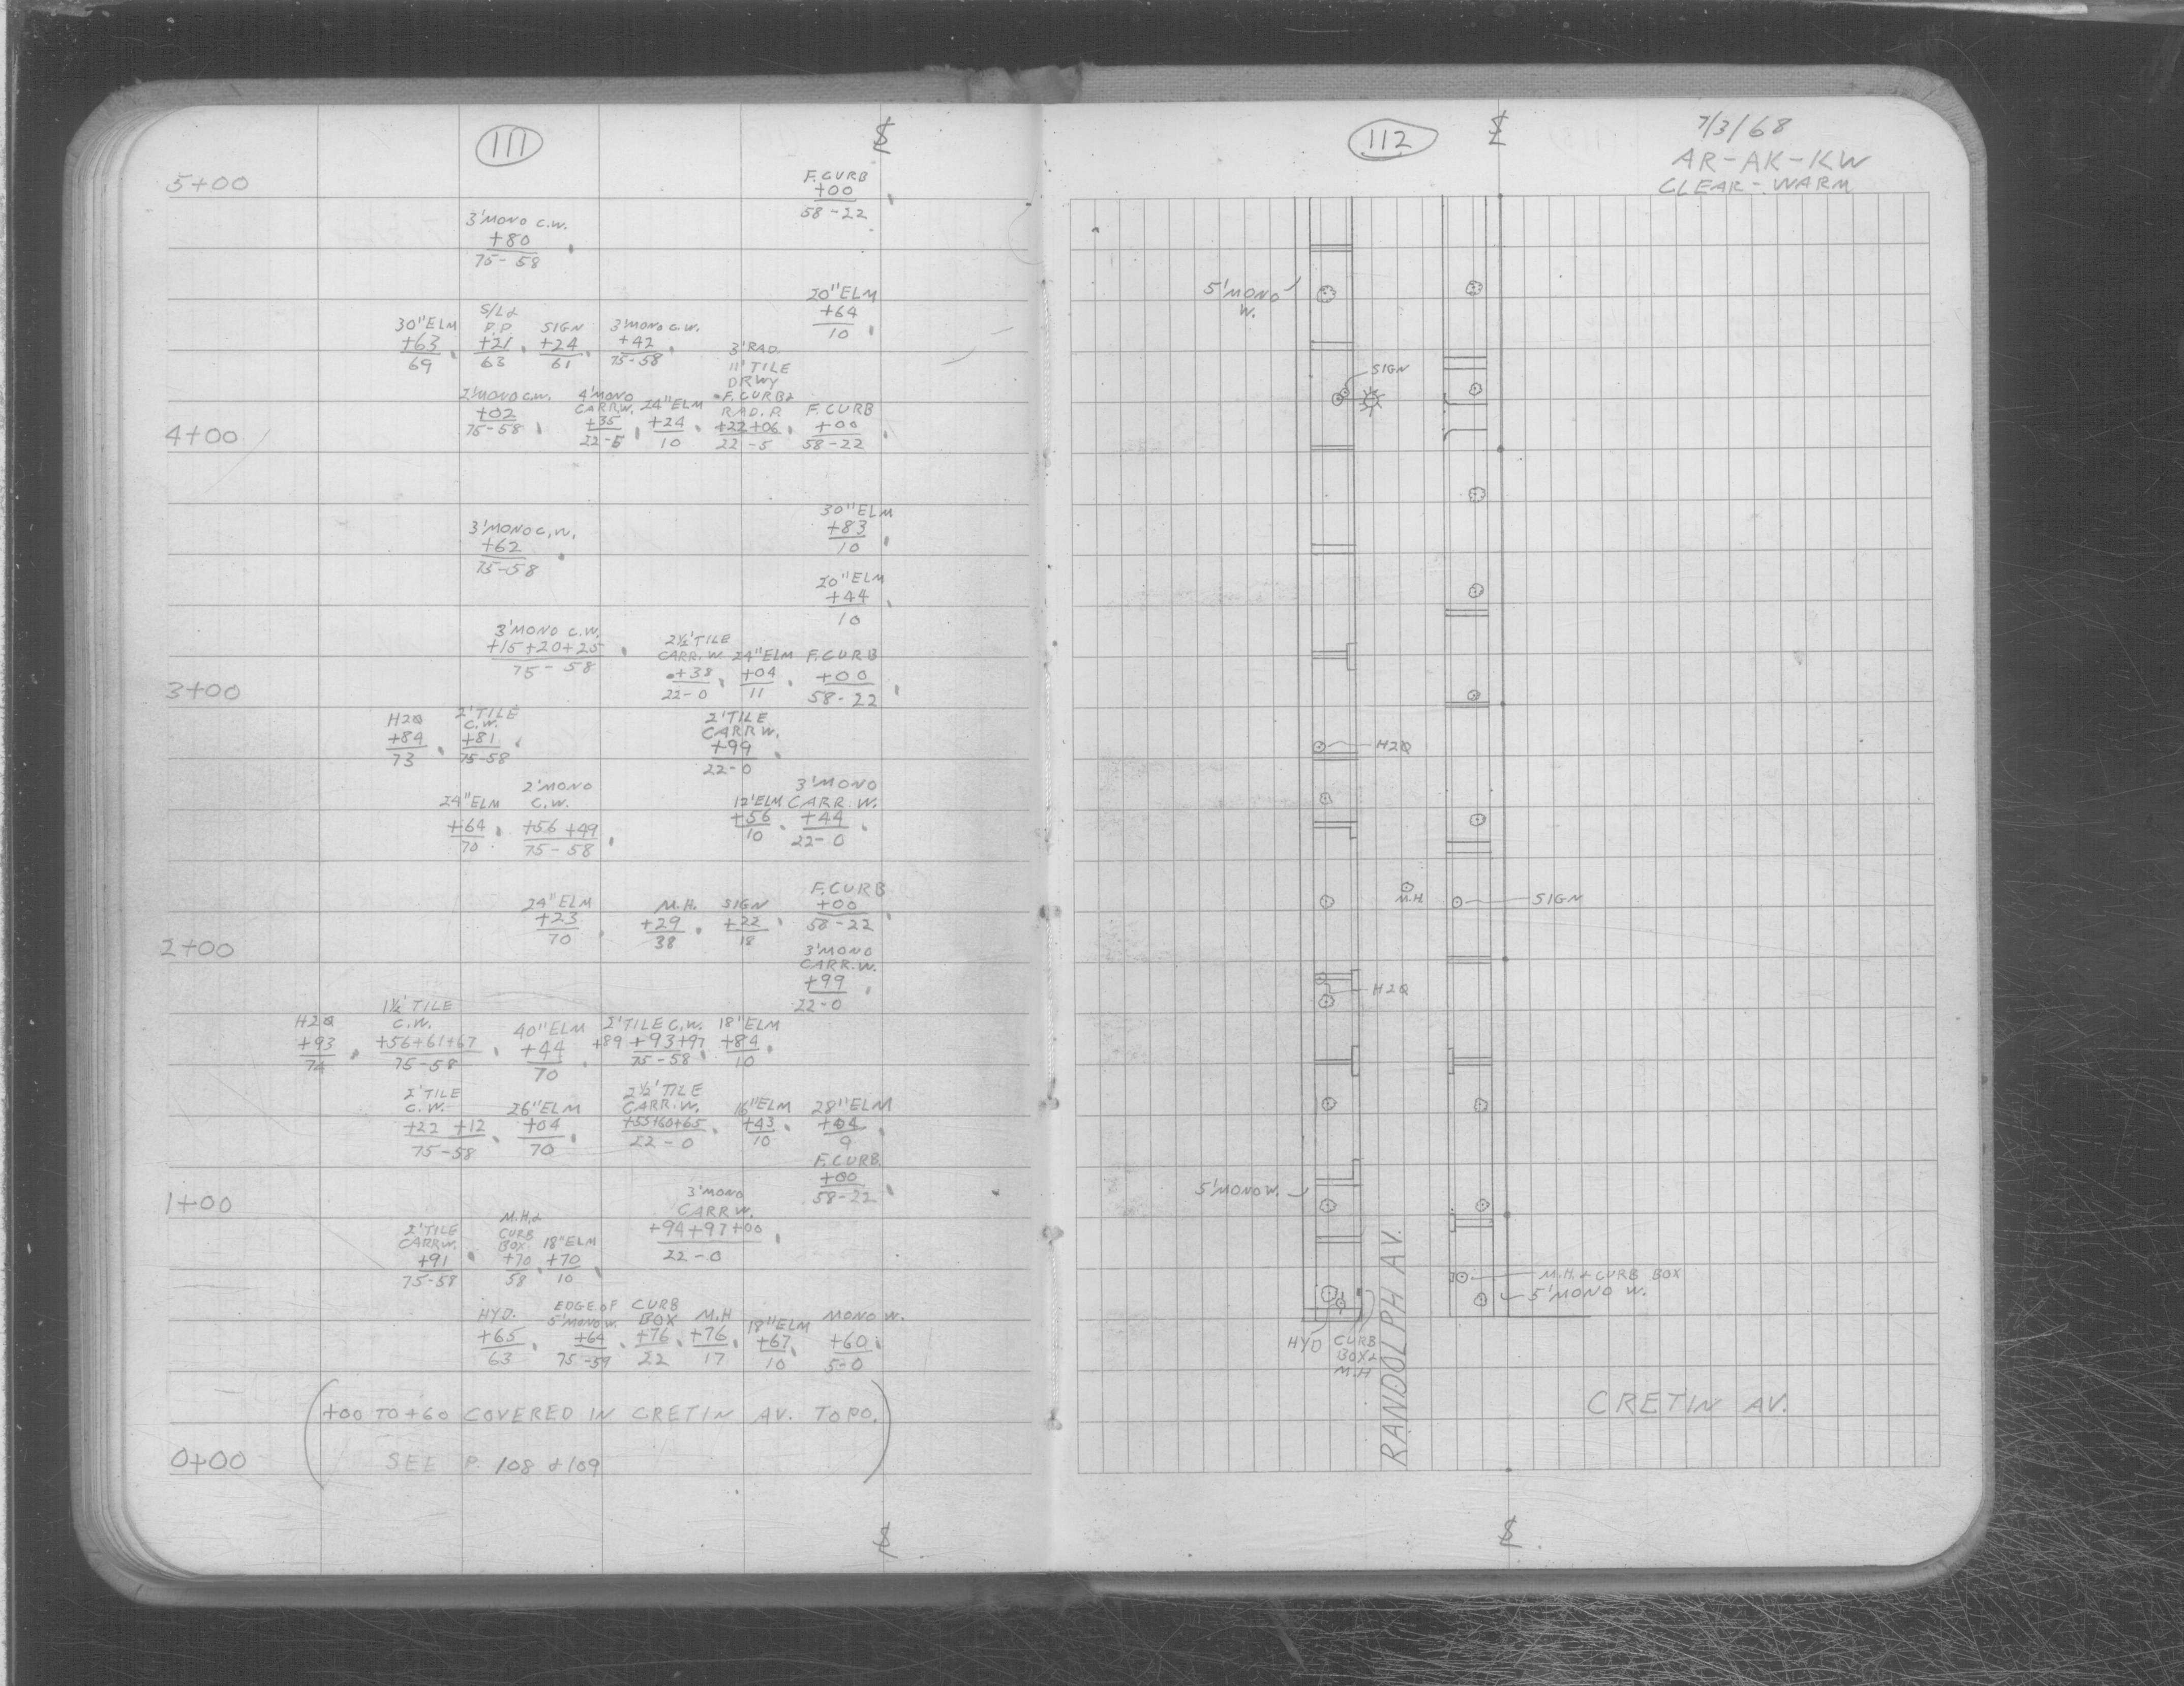 111
5+00
F.CURB
+00
58-22
3'MONO C.W.
+80
75-58
20"ELM
+64
10
30"ELM
+63
69
S/L&
P.P.
+21
63
SIGN
+24
61
3'MONO C.W.
+42
75-58
3'RAD.
11'TILE
DRWY
F.CURB&
RAD.P.
+22+06
22-5
2'MONO C.W.
+02
75-58
4'MONO
CARR.W.
+35
22-5
24"ELM
+24
10
F.CURB
+00
58-22
4+00
30"ELM
+83
10
3'MONO C.W.
+62
75-58
20"ELM
+44
10
3'MONO C.W.
+15+20+25
75-58
2½'TILE
CARR.W.
+38
22-0
24"ELM
+04
11
F.CURB
+00
58-22
3+00
H2O
+84
73
2'TILE
C.W.
+81
75-58
2'TILE
CARR W.
+99
22-0
24"ELM
+64
70
2'MONO
C.W.
+56 +49
75-58
12"ELM
+56
10
3'MONO
CARR.W.
+44
22-0
24"ELM
+23
70
M.H.
+29
38
SIGN
+22
18
F.CURB
+00
58-22
2+00
3'MONO
CARR.W.
+99
22-0
H2O
+93
74
1½'TILE
C.W.
+56+61+67
75-58
40"ELM
+44
70
2'TILE C.W.
+89 +93+97
75-58
18"ELM
+84
10
2'TILE
C.W.
+22 +12
75-58
26"ELM
+04
70
2½'TILE
CARR.W.
+55+60+65
22-0
16"ELM
+43
10
28"ELM
+04
9
F.CURB
+00
58-22
1+00
2'TILE
CARR.W.
+91
75-58
M.H.&
CURB
BOX
+70
58
18"ELM
+70
10
3'MONO
CARR W.
+94+97+00
22-0
HYD.
+65
63
EDGE OF
5'MONO W.
+64
75-59
CURB
BOX
+76
22
M.H
+76
17
18"ELM
+67
10
MONO W.
+60
5-0
(+00 TO +60 COVERED IN CRETIN AV. TOPO.
SEE P. 108 & 109)
0+00
112
7/3/68
AR-AK-KW
CLEAR-WARM
5'MONO
W.
SIGN
H2O
M.H
SIGN
H2O
5'MONO W.
M.H.& CURB BOX
5'MONO W.
HYD
CURB
BOX&
M.H
RANDOLPH AV.
CRETIN AV.